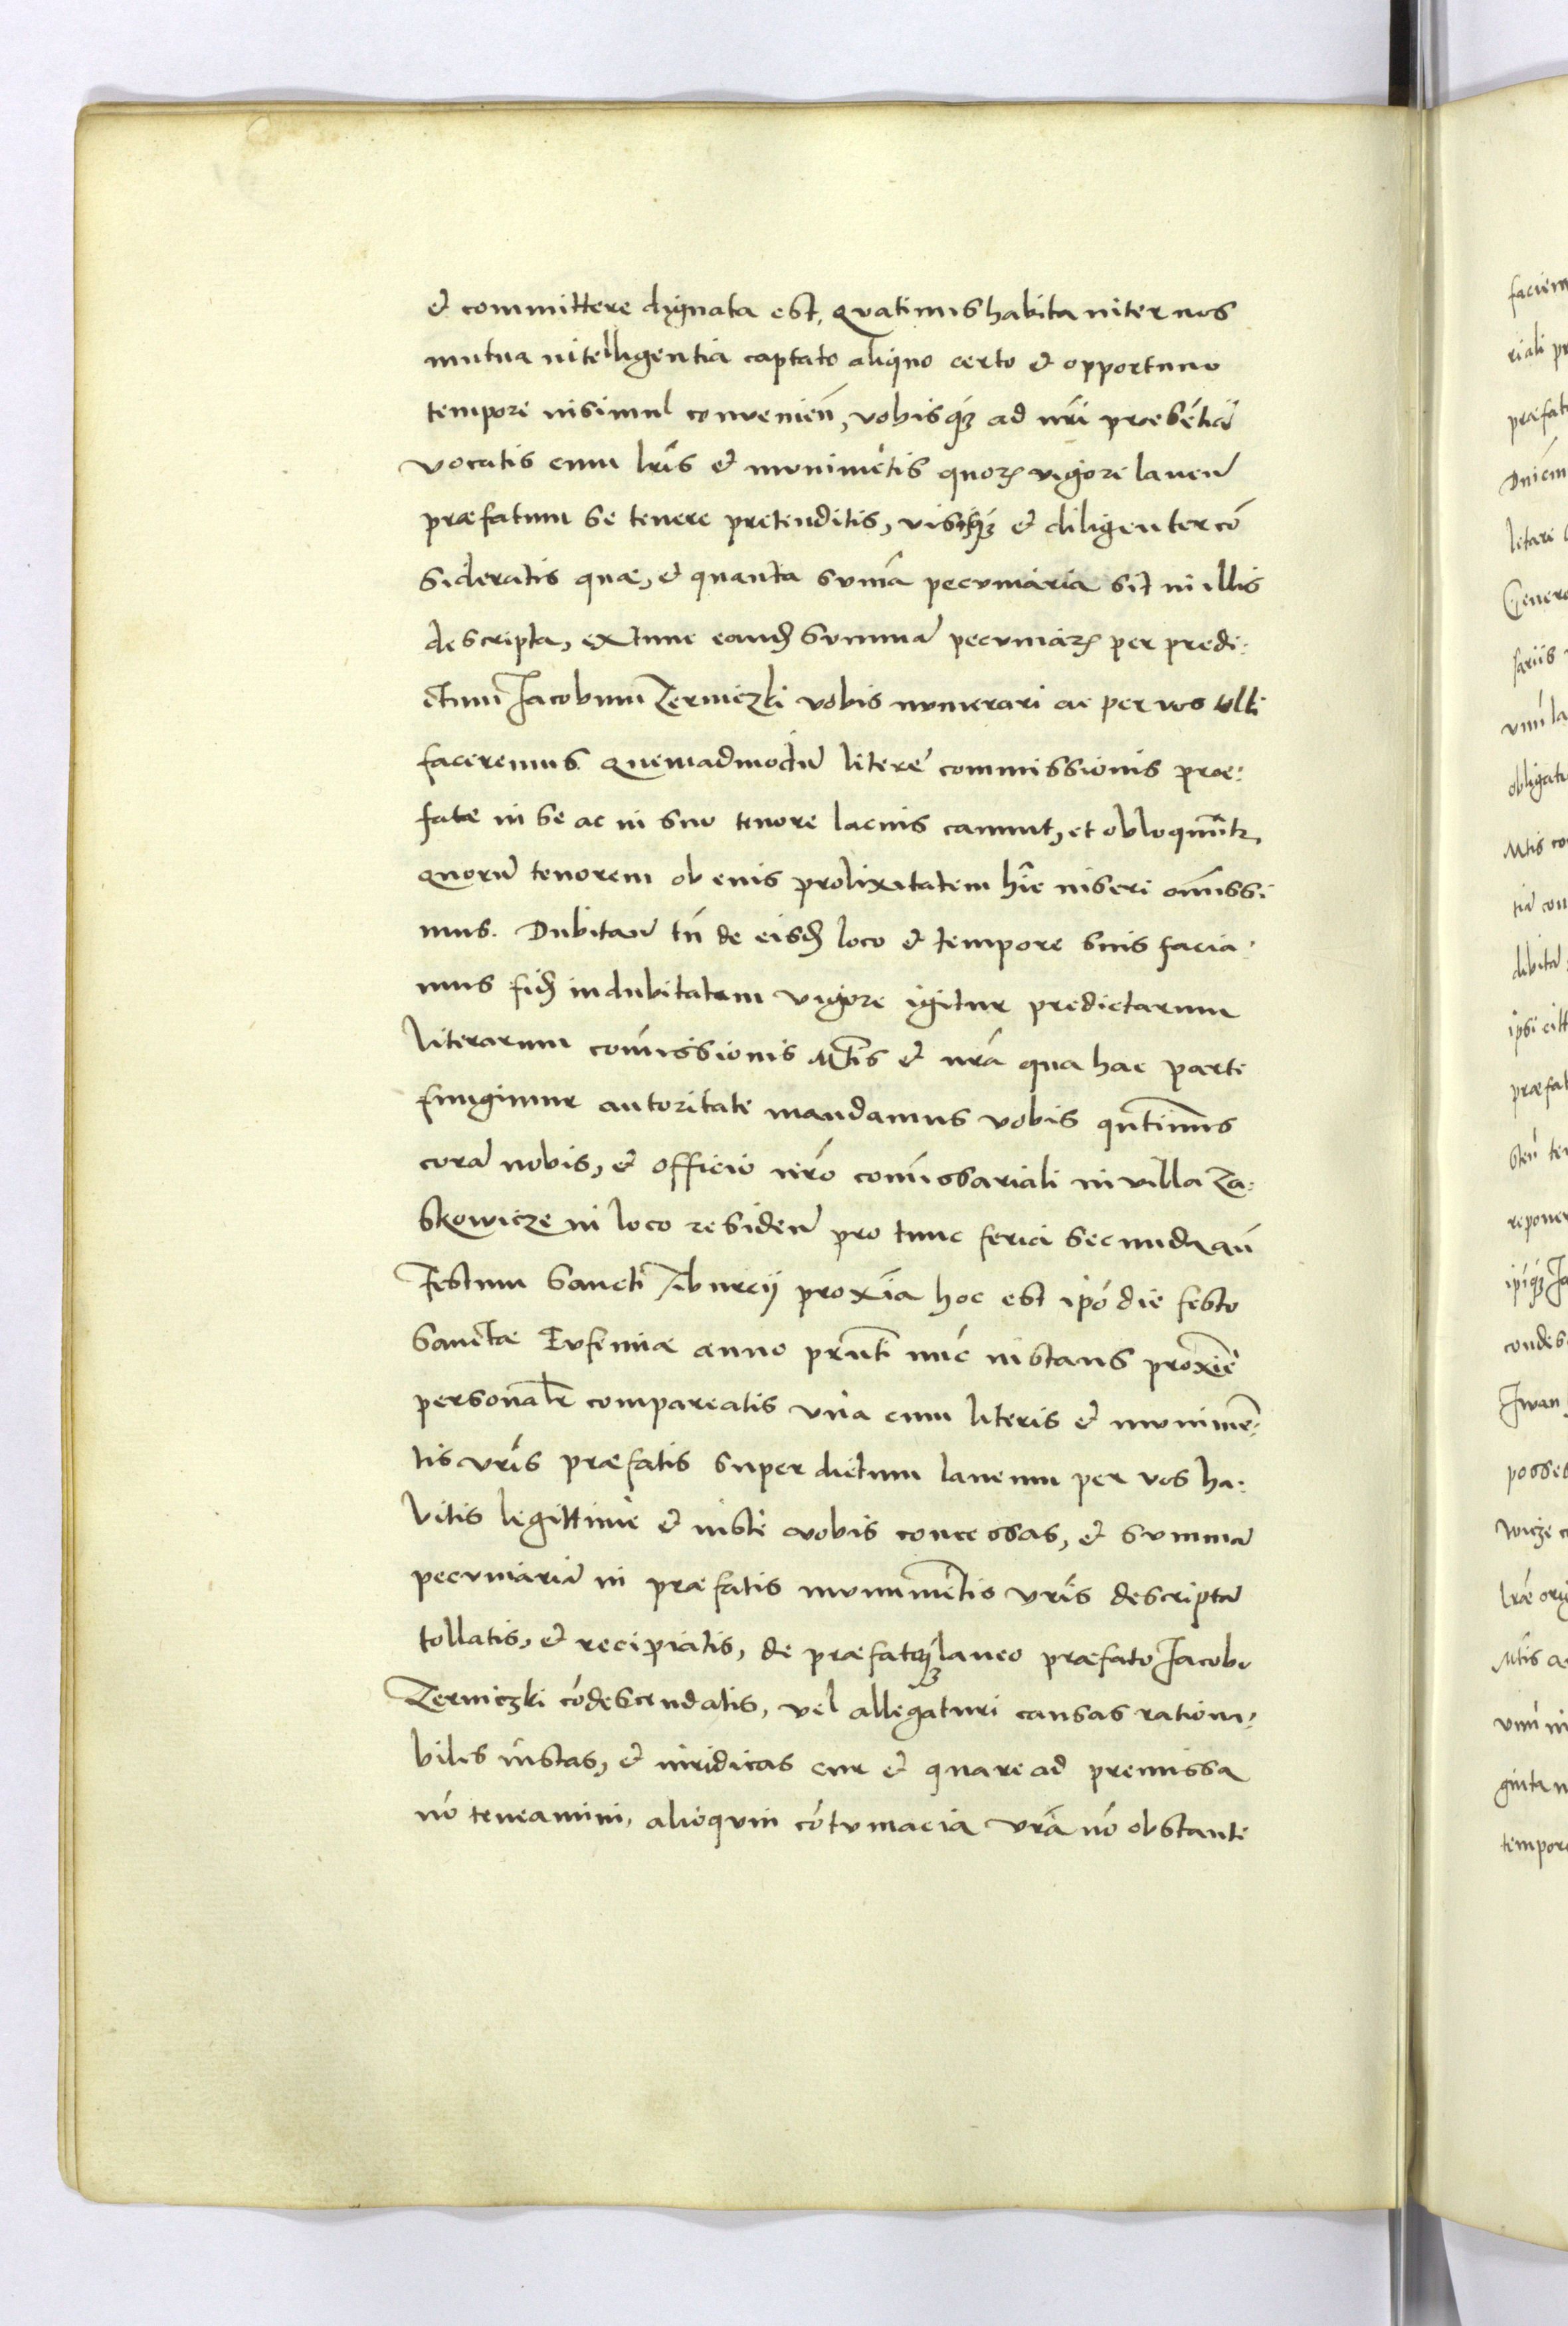 et committere dignata est, quatinus habita inter nos
mutua intelligentia captato aliquo certo et opportuno
tempore insimul convenień, vobisqꝫ ad nr̃i praesẽtiã
vocatis cum lr̃is et munimẽtis quoꝝ vigore laneũ
praefatum se tenere pretenditis, visisqꝫ et diligenter cõ
sideratis quae, et quanta sum̃a pecuniaria sit in illis
descripta, extunc eand̃ summã pecuniaꝝ per predi:
ctum Jacobum Zerniczki vobis numerari ac per vos tolli
faceremus quemadmodũ literę commissionis prae:
fatae in se ac in suo tenore lacius canunt, et obloquũtr,
quorũ tenorem ob euis prolixitatem hîc inseri omissi
mus. Dubitań tñ de eisd̃ loco et tempore suis facia:
mus fid̃ indubitatam vigore igitur predictarum
literarum com̃issionis Mt̃is et nr̃a qua hac parte
fungimur autoritate mandamus vobis qũtinus
corã nobis, et officio nr̃o com̃issariali in villa Za:
skowicze in loco resideń pro tunc feria secunda añ
Festum Sancti Tiburcij proxĩa hoc est ipõ die festo
Sanctae Eufemiae anno prñti nũc instans proxiẽ
personalr̃ compareatis vna cum literis et munimẽ:
tis vr̃is praefatis super dictum laneum per vos ha:
bitis legittimè et iustè vobis concessas, et summã
pecuniariã in praefatis munimẽtis vr̃is descriptã
tollatis, et recipiatis, de praefatoqꝫ laneo praefato Jacobo
Zerniczki cõdescendatis, vel allegaturi causas rationa:
biles iustas, et iuridicas cur et quare ad premissa
nõ teneamini, alioquin cõtumacia vr̃a nõ obstante